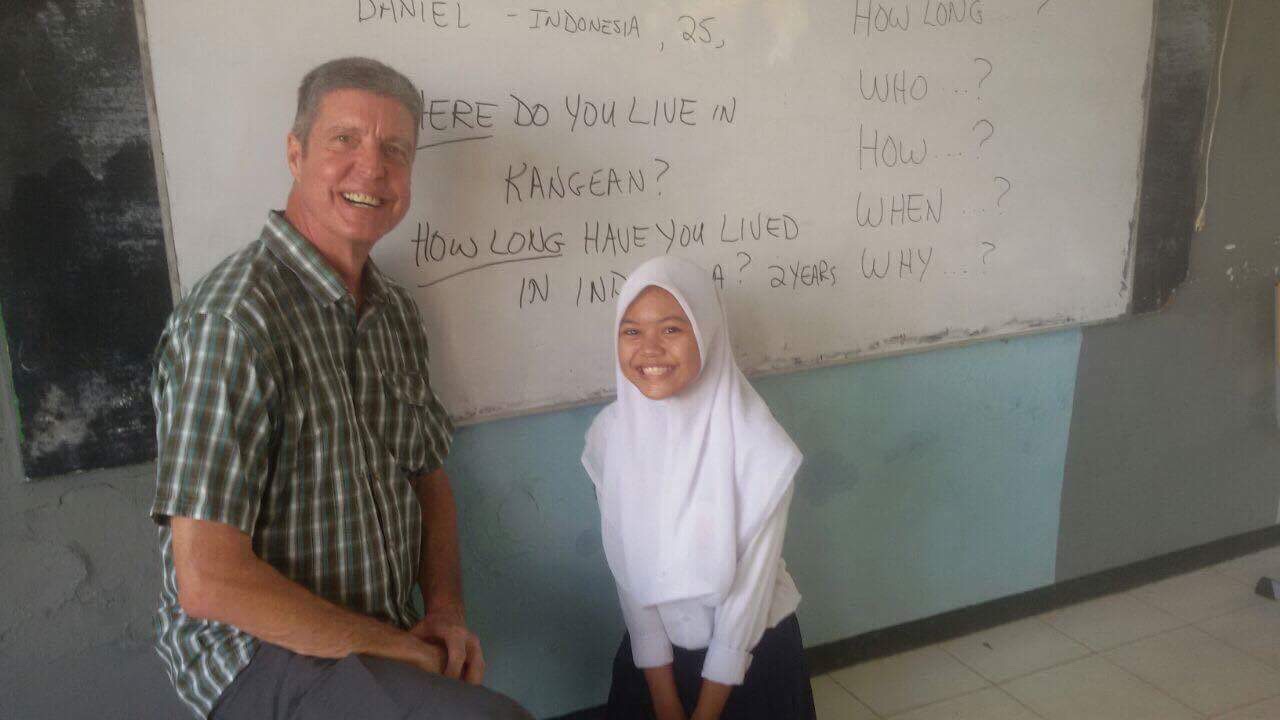 DANIEL - INDONESIA, 25,
HERE DO YOU LIVE IN
KANGEAN?
HOW LONG HAVE YOU LIVED
IN IND A? 2 YEARS
HOW LONG ?
WHO ...?
HOW ...?
WHEN ...?
WHY ...?